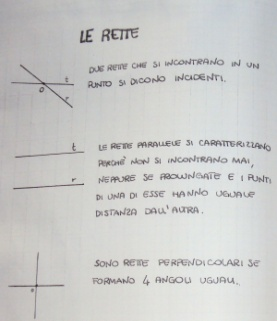 LE RETTE
DUE RETTE CHE SI INCONTRANO IN UN
PUNTO SI DICONO INCIDENTI.
t
O
r
LE RETTE PARALLELE SI CARATTERIZZANO
PERCHÉ NON SI INCONTRANO MAI,
NEPPURE SE PROLUNGATE E I PUNTI
DI UNA DI ESSE HANNO UGUALE
DISTANZA DALL'ALTRA.
t
r
SONO RETTE PERPENDICOLARI SE
FORMANO 4 ANGOLI UGUALI.